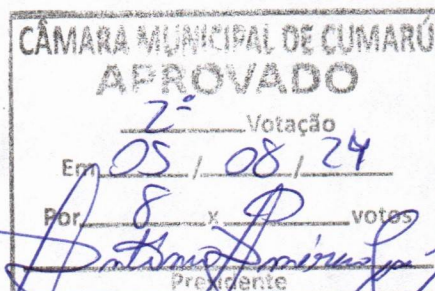 CÂMARA MUNICIPAL DE CUMARÚ
APROVADO
2ª Votação
Em 05 / 08 / 24
Por 8 x 0 votos
Antônio Américo
Presidente